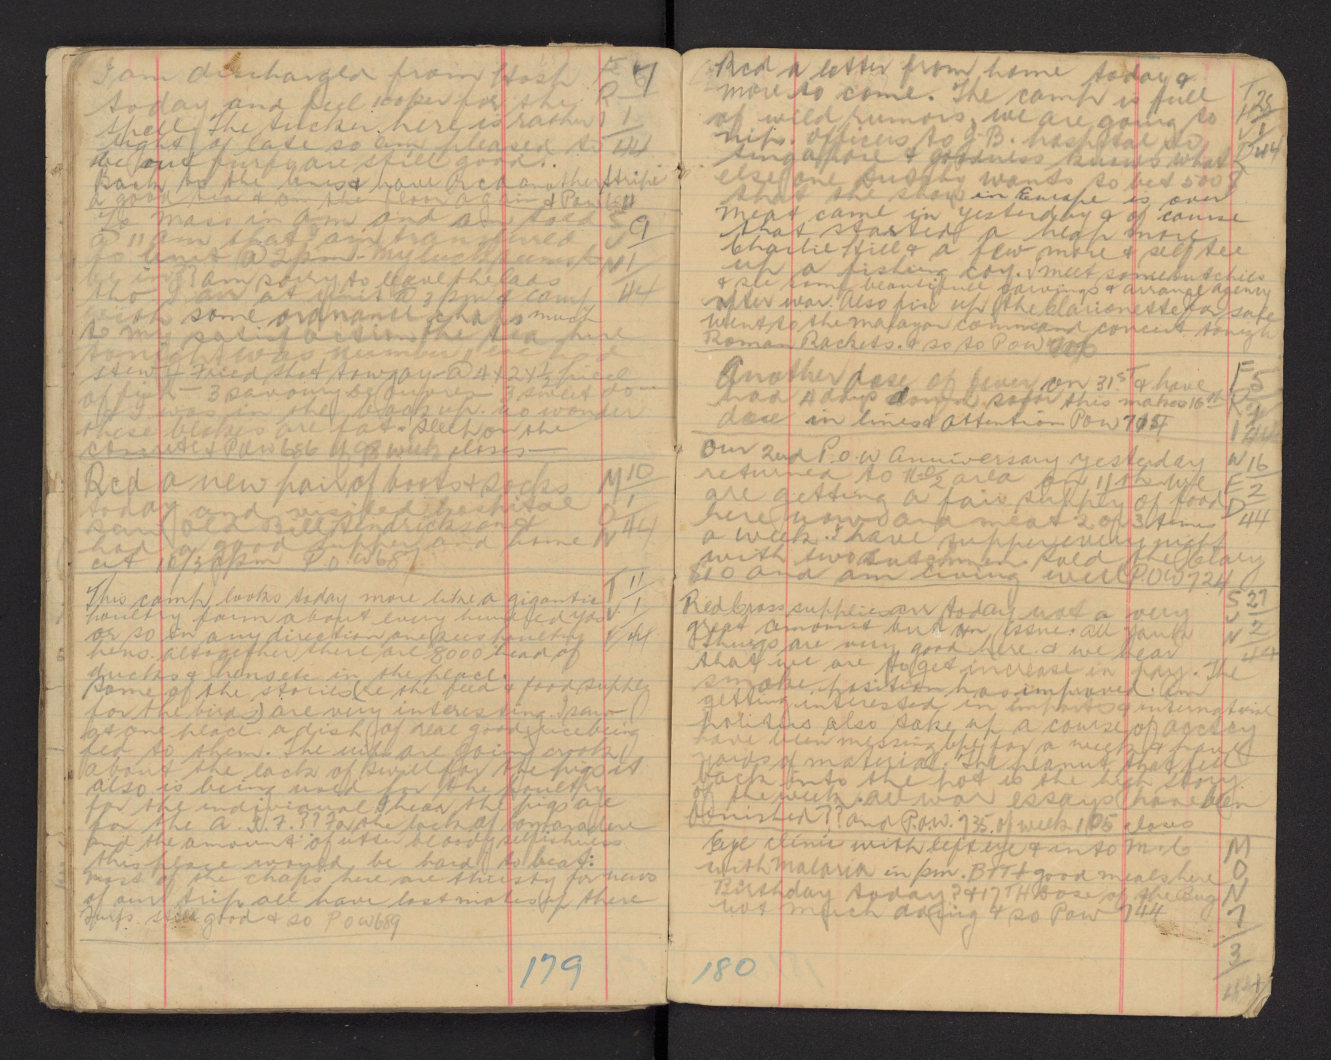 I am discharged from Hosp F 7
today and feel  for the R
spell. The tucker here is rather 1
light of late so am pleased to 44
be out furfs are still good.
Back to the lines & have Rcd another stripe
a good tea & on the floor again & Pow
To mass in a.m and am told S 9
@ 11 am that I am transferred U
to unit @ 2 pm - My luck seems to N 1
be in?? am sorry to leave the lads
tho I arr at unit @ 3 pm & camp 44
with some ordnance chaps much
to my satisfaction the tea here
tonight was number one
stew - Fried 
of fish - 3 savoury  - 3 sweet do -
& I was in the back up. no wonder
these blokes are fat. Sleep on the
concrete & Pow 686 of 98 week closes -
Rcd a new pair of boots & socks M 10
today and visited hospital 1
saw old Bill Hendrickson & 44
had a good supper and home N
at 10/30 pm P.o.W 687
This camp looks today more like a gigantic T 11
poultry farm about every hundred yds U 1
or so in any direction one sees poultry
hens. altogether there are 8000 head of 44
ducks & hens etc in the place.
Some of the stories (re the feed & food supply
for the birds) are very interesting. I saw
at one place a dish of real good rice being
fed to them. The  are going crook
about the lack of swill for the pigs it
also is being used for the poultry
for the individual. I hear the pigs are
for the A.I.F??? For the lack of comaradere
and the amount of utter bloody selfishness
this place would be hard to beat:
most of the chaps here are thirsty for news
of our trip all have lost mates up there
Furfs. still good & so Pow 689
179
Rcd a letter from home today & T
more to come. The camp is full 25
of wild rumors, we are going to U 1
nips. officers to G.B. hospital to 44
Singapore & goodness knows what
else one  wants to bet 500 $
that the show in Europe is over
Meat came in yesterday & of course
that started a heap more
Charlie Hill & a few more & self tee
up a fishing coy. I meet some dutchies
& see some beautiful carvings & arrange agency
after war. Also fix up the Clarionette for sale
Went to the malayan command concert tonight
Roman Rackets. & so to Pow
Another dose of fever on 31st & have F 5
had 4 days down. so far this makes 16th R
dose in lines & attention Pow 715 I 44
Our 2nd P.O.W Anniversary yesterday W 16
returned to  area on 11th we E 2
are getting a fair supply of food D
here now and meat 2 or 3 times 44
a week. I have supper every night
with two dutchmen. sold the Clary
$10 and am living well P.O.W 724
Red Cross supplies arr today not a very S 27
great amount but on issue. all 
things are very good here & we hear N 2
that we are to get increase in pay. The 44
smoke position has improved. am
getting interested in imports & international
politics also take up a course of acctcy
have been messing  for a week & have
yards of material. The peanut that fell
back into the pot is the high story
of the week. all war essays have been
finished?? and Pow. 735. of week 105 closes
Eye clinic with left eye & into M
with malaria in pm. BTT & good meals here O
Birthday today? & 17TH Dose of the Bug N
not much doing & so Pow 744 7
3
44
180